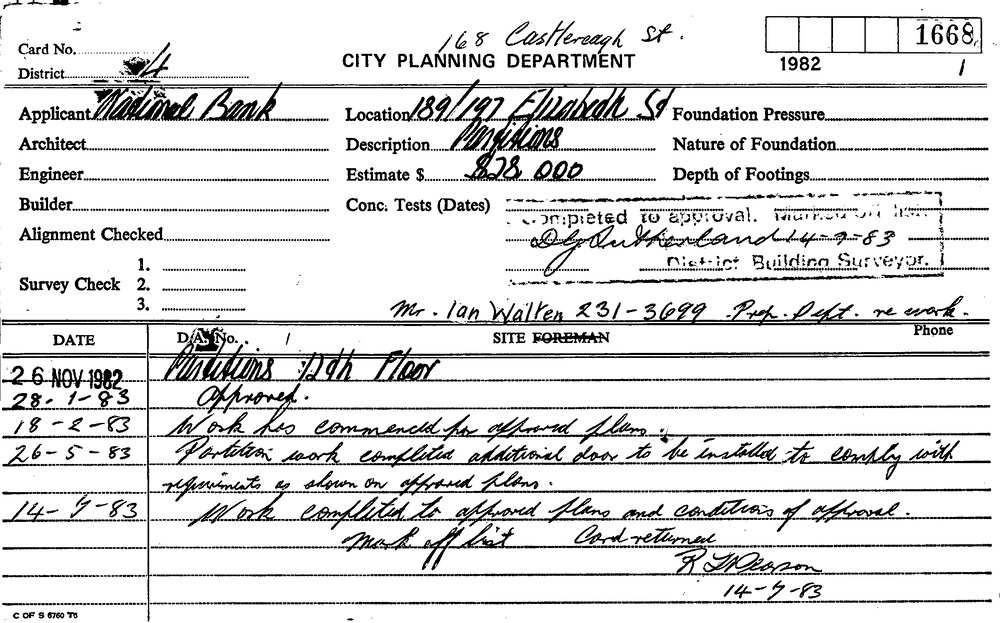 168 Castlereagh St.
Card No.
CITY PLANNING DEPARTMENT
1668
District 4
1982
1
Applicant National Bank
Location 189/197 Elizabeth St
Foundation Pressure
Architect
Description Partitions
Nature of Foundation
Engineer
Estimate $ $28 000
Depth of Footings
Builder
Conc. Tests (Dates)
Completed to approval. Marked off list.
Alignment Checked
D G Sutherland 14-7-83
District Building Surveyor.
Survey Check 1.
2.
3.
Mr. Ian Walten 231-3699 Prop. Dept. re work.
DATE
D.A. No. /
SITE FOREMAN
Phone
26 NOV 1982 Partitions 12th Floor
28-1-83 Approved.
18-2-83 Work has commenced per approved plans.
26-5-83 Partition work completed additional door to be installed to comply with
requirements as shown on approved plans.
14-7-83 Work completed to approved plans and conditions of approval.
Mark off list Card returned
14-7-83
C OF S 6760 T6